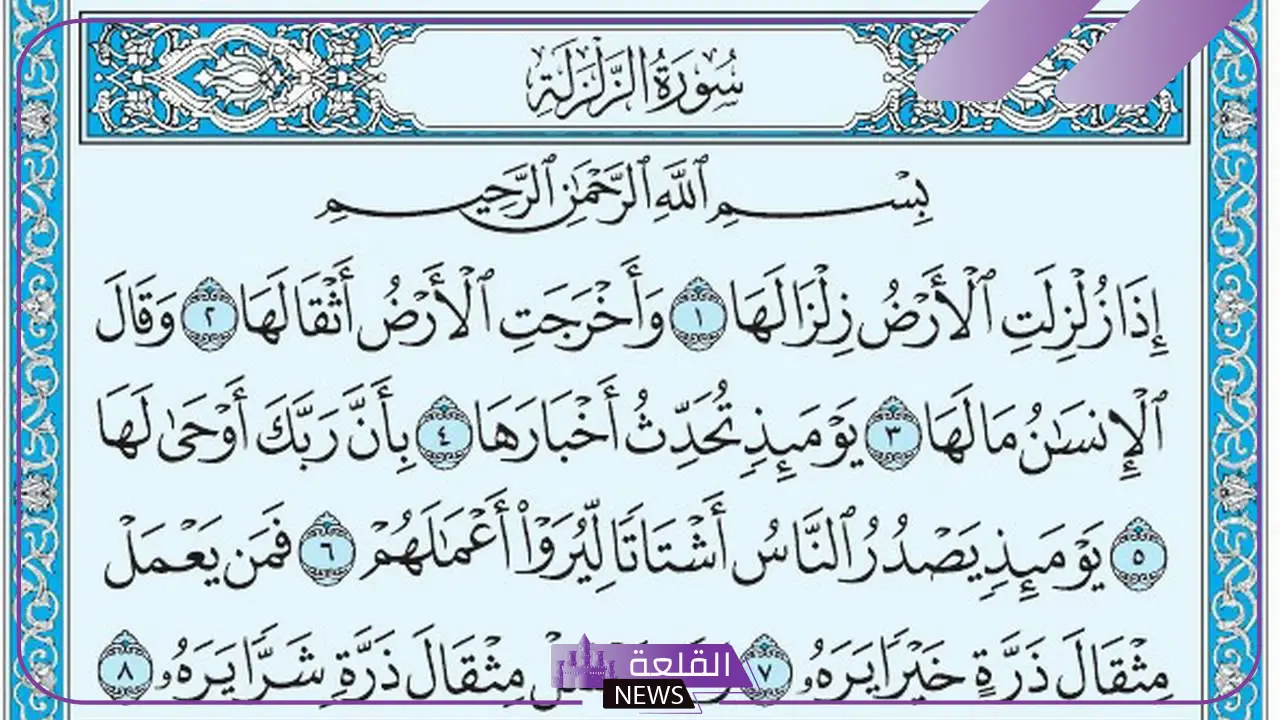 سُورَةُ الزَّلْزَلَةِ
بِسْمِ ٱللَّهِ ٱلرَّحْمَٰنِ ٱلرَّحِيمِ
إِذَا زُلْزِلَتِ ٱلْأَرْضُ زِلْزَالَهَا ١ وَأَخْرَجَتِ ٱلْأَرْضُ أَثْقَالَهَا ٢ وَقَالَ
ٱلْإِنسَٰنُ مَا لَهَا ٣ يَوْمَئِذٍ تُحَدِّثُ أَخْبَارَهَا ٤ بِأَنَّ رَبَّكَ أَوْحَىٰ لَهَا
٥ يَوْمَئِذٍ يَصْدُرُ ٱلنَّاسُ أَشْتَاتًا لِّيُرَوْا۟ أَعْمَٰلَهُمْ ٦ فَمَن يَعْمَلْ
مِثْقَالَ ذَرَّةٍ خَيْرًا يَرَهُۥ ٧ مِثْقَالَ ذَرَّةٍ شَرًّا يَرَهُۥ ٨
القلعة
NEWS